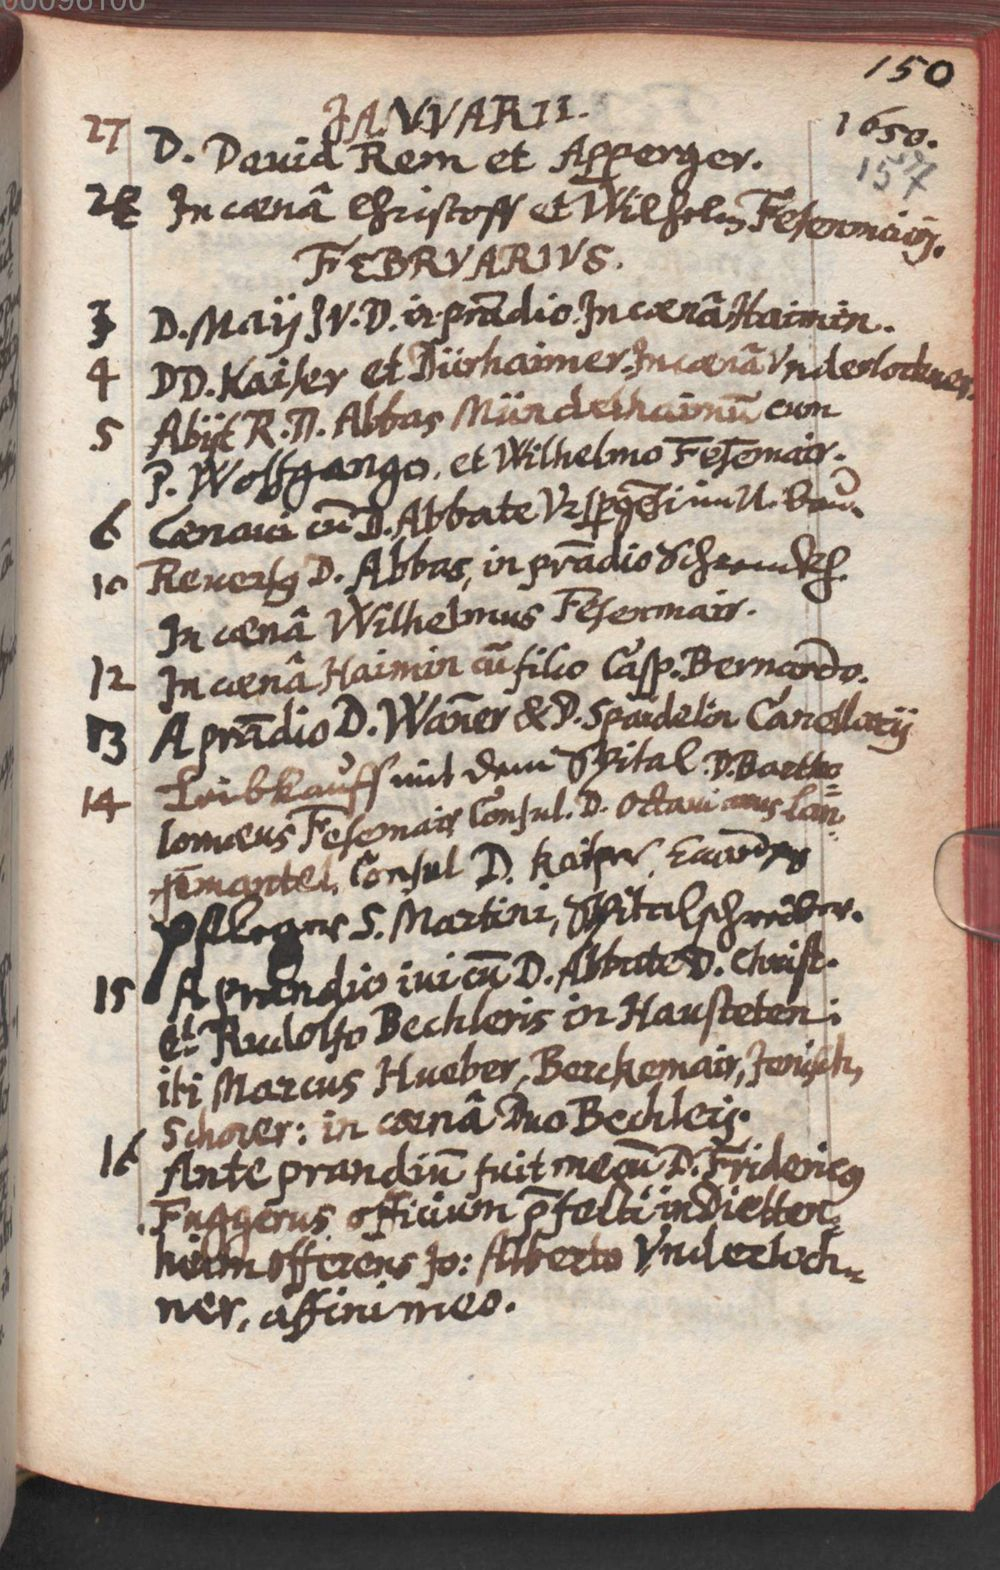 00096100
150
JANVARII.
1650.
27 D. Dauid Rem et Apperger.
157
28 In cœnâ Christoff et Wilhelm Fesenmair.
FEBRVARIVS.
3 D. Maÿ JV.D. in prādio. In cœnâ Haimin.
4 DD. Kaiser et Dürhaimer. In cœnâ Vnderlochner.
5 Abijt R.D. Abbas Münderhaimū cum
P. Wolfgango, et Wilhelmo Fesemair.
6 Cœnaui cū D. Abbate
10 D. Abbas, in prādio
In cœnâ Wilhelmus Fesenmair.
12 In cœnâ Haimin cū filio Casp. Bernardo.
13 A prādio D. Waner & D. Spaidelin Cancellarÿ
14 Leibkauff mit dem Spital. D. Bartho=
lomæus Fesemair Consul. D. Octauianus Lan
gemantel, Consul D. Kaiser,
Pfleger S. Martini, Spitalschreiber.
15 A prandio iui cū D. Abbate D. Christ.
et Rudolfo Bechleris in Hausteten:
iti Marcus Hueber, Berckemair, Jenisch,
Schorer: in cœnâ Duo Bechleij.
16 Ante prandiū fuit mecū D. Fridericus
Fuggerus officium p̄fecti in Dietten=
heim offerens Jo: Alberto Vnderloch=
ner, affini meo.